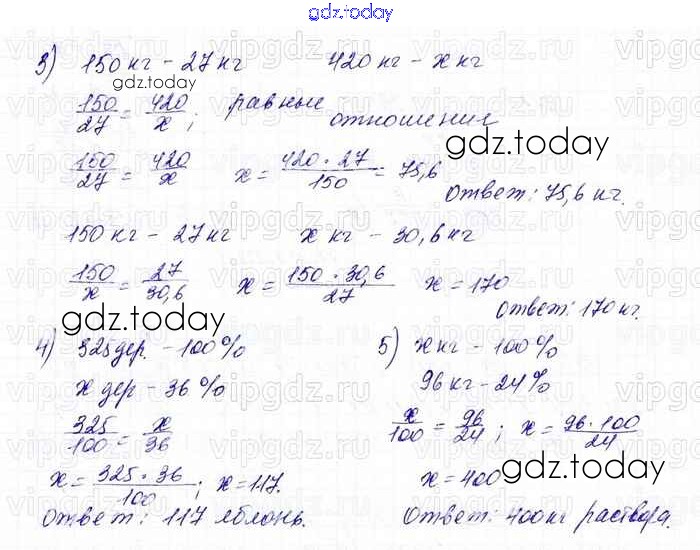 gdz.today
3) 150 кг – 27 кг 420 кг – x кг
gdz.today
150/27 = 420/x; равные
отношение
gdz.today
150/27 = 420/x x = 420·27/150 = 75,6
Ответ: 75,6 кг.
150 кг – 27 кг x кг – 30,6 кг
150/x = 27/30,6 x = 150·30,6/27 x = 170
Ответ: 170 кг.
gdz.today
4) 325 дер. – 100% 5) x кг – 100%
x дер – 36% 96 кг – 24%
325/100 = x/36 x/100 = 96/24; x = 96·100/24
x = 325·36/100; x = 117. x = 400
gdz.today
Ответ: 117 яблонь. Ответ: 400 кг раствора.